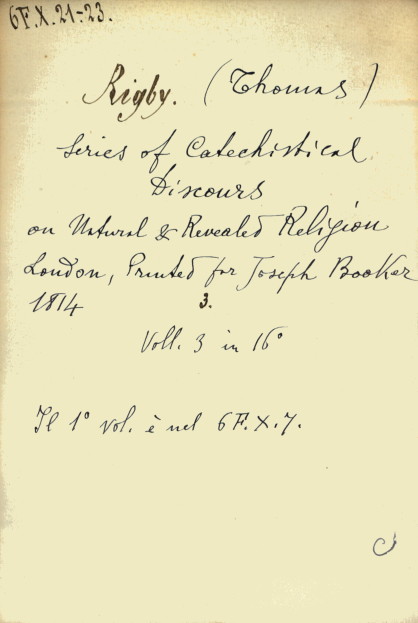 6F.X.21-23.
Rigby. (Thomas)
Series of Catechistical
Discours
on Natural & Revealed Religion
London, Printed for Joseph Booker
1814 3.
Voll. 3 in 16°
Il 1° vol. è nel 6F.X.7.